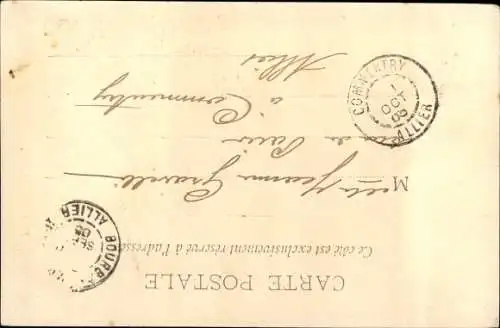 CARTE POSTALE
Ce côté est exclusivement réservé à l'adresse
M elle Jeanne
rue de
à Commentry
Allier
COMMENTRY
1
OCT
05
ALLIER
BOURB
SEPT
05
ALLIER